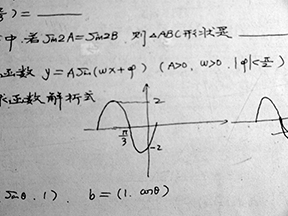 ) = ___
中,若 sin2A = sin2B.则△ABC形状是 ___
函数 y = A sin(wx+φ) (A>0, w>0. |φ|<π/2)
求函数解析式
2
π/3
-2
sinθ, 1). b = (1. cosθ)